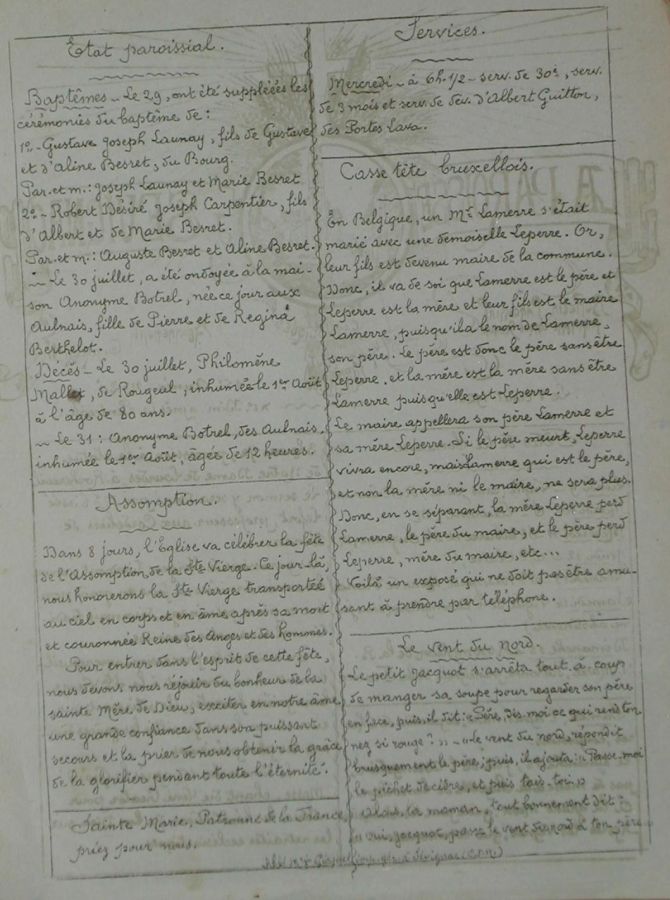 État paroissial.
Baptêmes – Le 29, ont été suppléées les
cérémonies du baptême de :
1º – Gustave Joseph Launay, fils de Gustave
et d'Aline Besret, du Bourg.
Par. et m. : Joseph Launay et Marie Besret
2º – Robert Désiré Joseph Carpentier, fils
d'Albert et de Marie Besret.
Par. et m. : Auguste Besret et Aline Besret.
~ Le 30 juillet, a été ondoyée à la mai-
son Anonyme Botrel, née ce jour aux
Aulnais, fille de Pierre et de Regina
Berthelot.
Décès – Le 30 juillet, Philomène
Mallet, de Rougeul, inhumée le 1er Août
à l'âge de 80 ans.
~ Le 31 : Anonyme Botrel, des Aulnais,
inhumée le 1er Août, âgée de 12 heures.
Assomption.
Dans 8 jours, l'Eglise va célébrer la fête
de l'Assomption de la Ste Vierge. Ce jour-là,
nous honorerons la Ste Vierge transportée
au ciel en corps et en âme après sa mort
et couronnée Reine des Anges et des hommes.
Pour entrer dans l'esprit de cette fête,
nous devons nous réjouir du bonheur de la
sainte Mère de Dieu, exciter en notre âme
une grande confiance dans son puissant
secours et la prier de nous obtenir la grâce
de la glorifier pendant toute l'éternité.
Sainte Marie, Patronne de la France,
priez pour nous.
Services.
Mercredi – à 6h.1/2 – serv. de 30e, serv.
de 3 mois et serv. de dev. d'Albert Guitton,
des Portes Lava.
Casse tête bruxellois.
En Belgique, un Mr Lamerre s'était
marié avec une demoiselle Leperre. Or,
leur fils est devenu maire de la commune.
Donc, il va de soi que Lamerre est le père et
Leperre est la mère et leur fils est le maire
Lamerre, puisqu'il a le nom de Lamerre,
son père. Le père est donc le père sans être
Leperre, et la mère est la mère sans être
Lamerre puisqu'elle est Leperre.
Le maire appellera son père Lamerre et
sa mère Leperre. Si le père meurt, Leperre
vivra encore, mais Lamerre qui est le père,
et non la mère ni le maire, ne sera plus.
Donc, en se séparant, la mère Leperre perd
Lamerre, le père du maire, et le père perd
Leperre, mère du maire, etc...
Voilà un exposé qui ne doit pas être amu-
sant à prendre par téléphone.
Le vent du Nord.
Le petit Jacquot s'arrêta tout à coup
de manger sa soupe pour regarder son père
en face, puis, il dit : « Père, dis-moi ce qui rend ton
nez si rouge ? » – « Le vent du nord, répondit
brusquement le père ; puis, il ajouta : « Passe-moi
le pichet de cidre, et puis tais-toi. »
Alors, la maman, tout bonnement dit :
« oui, Jacquot, passe le vent du nord à ton père